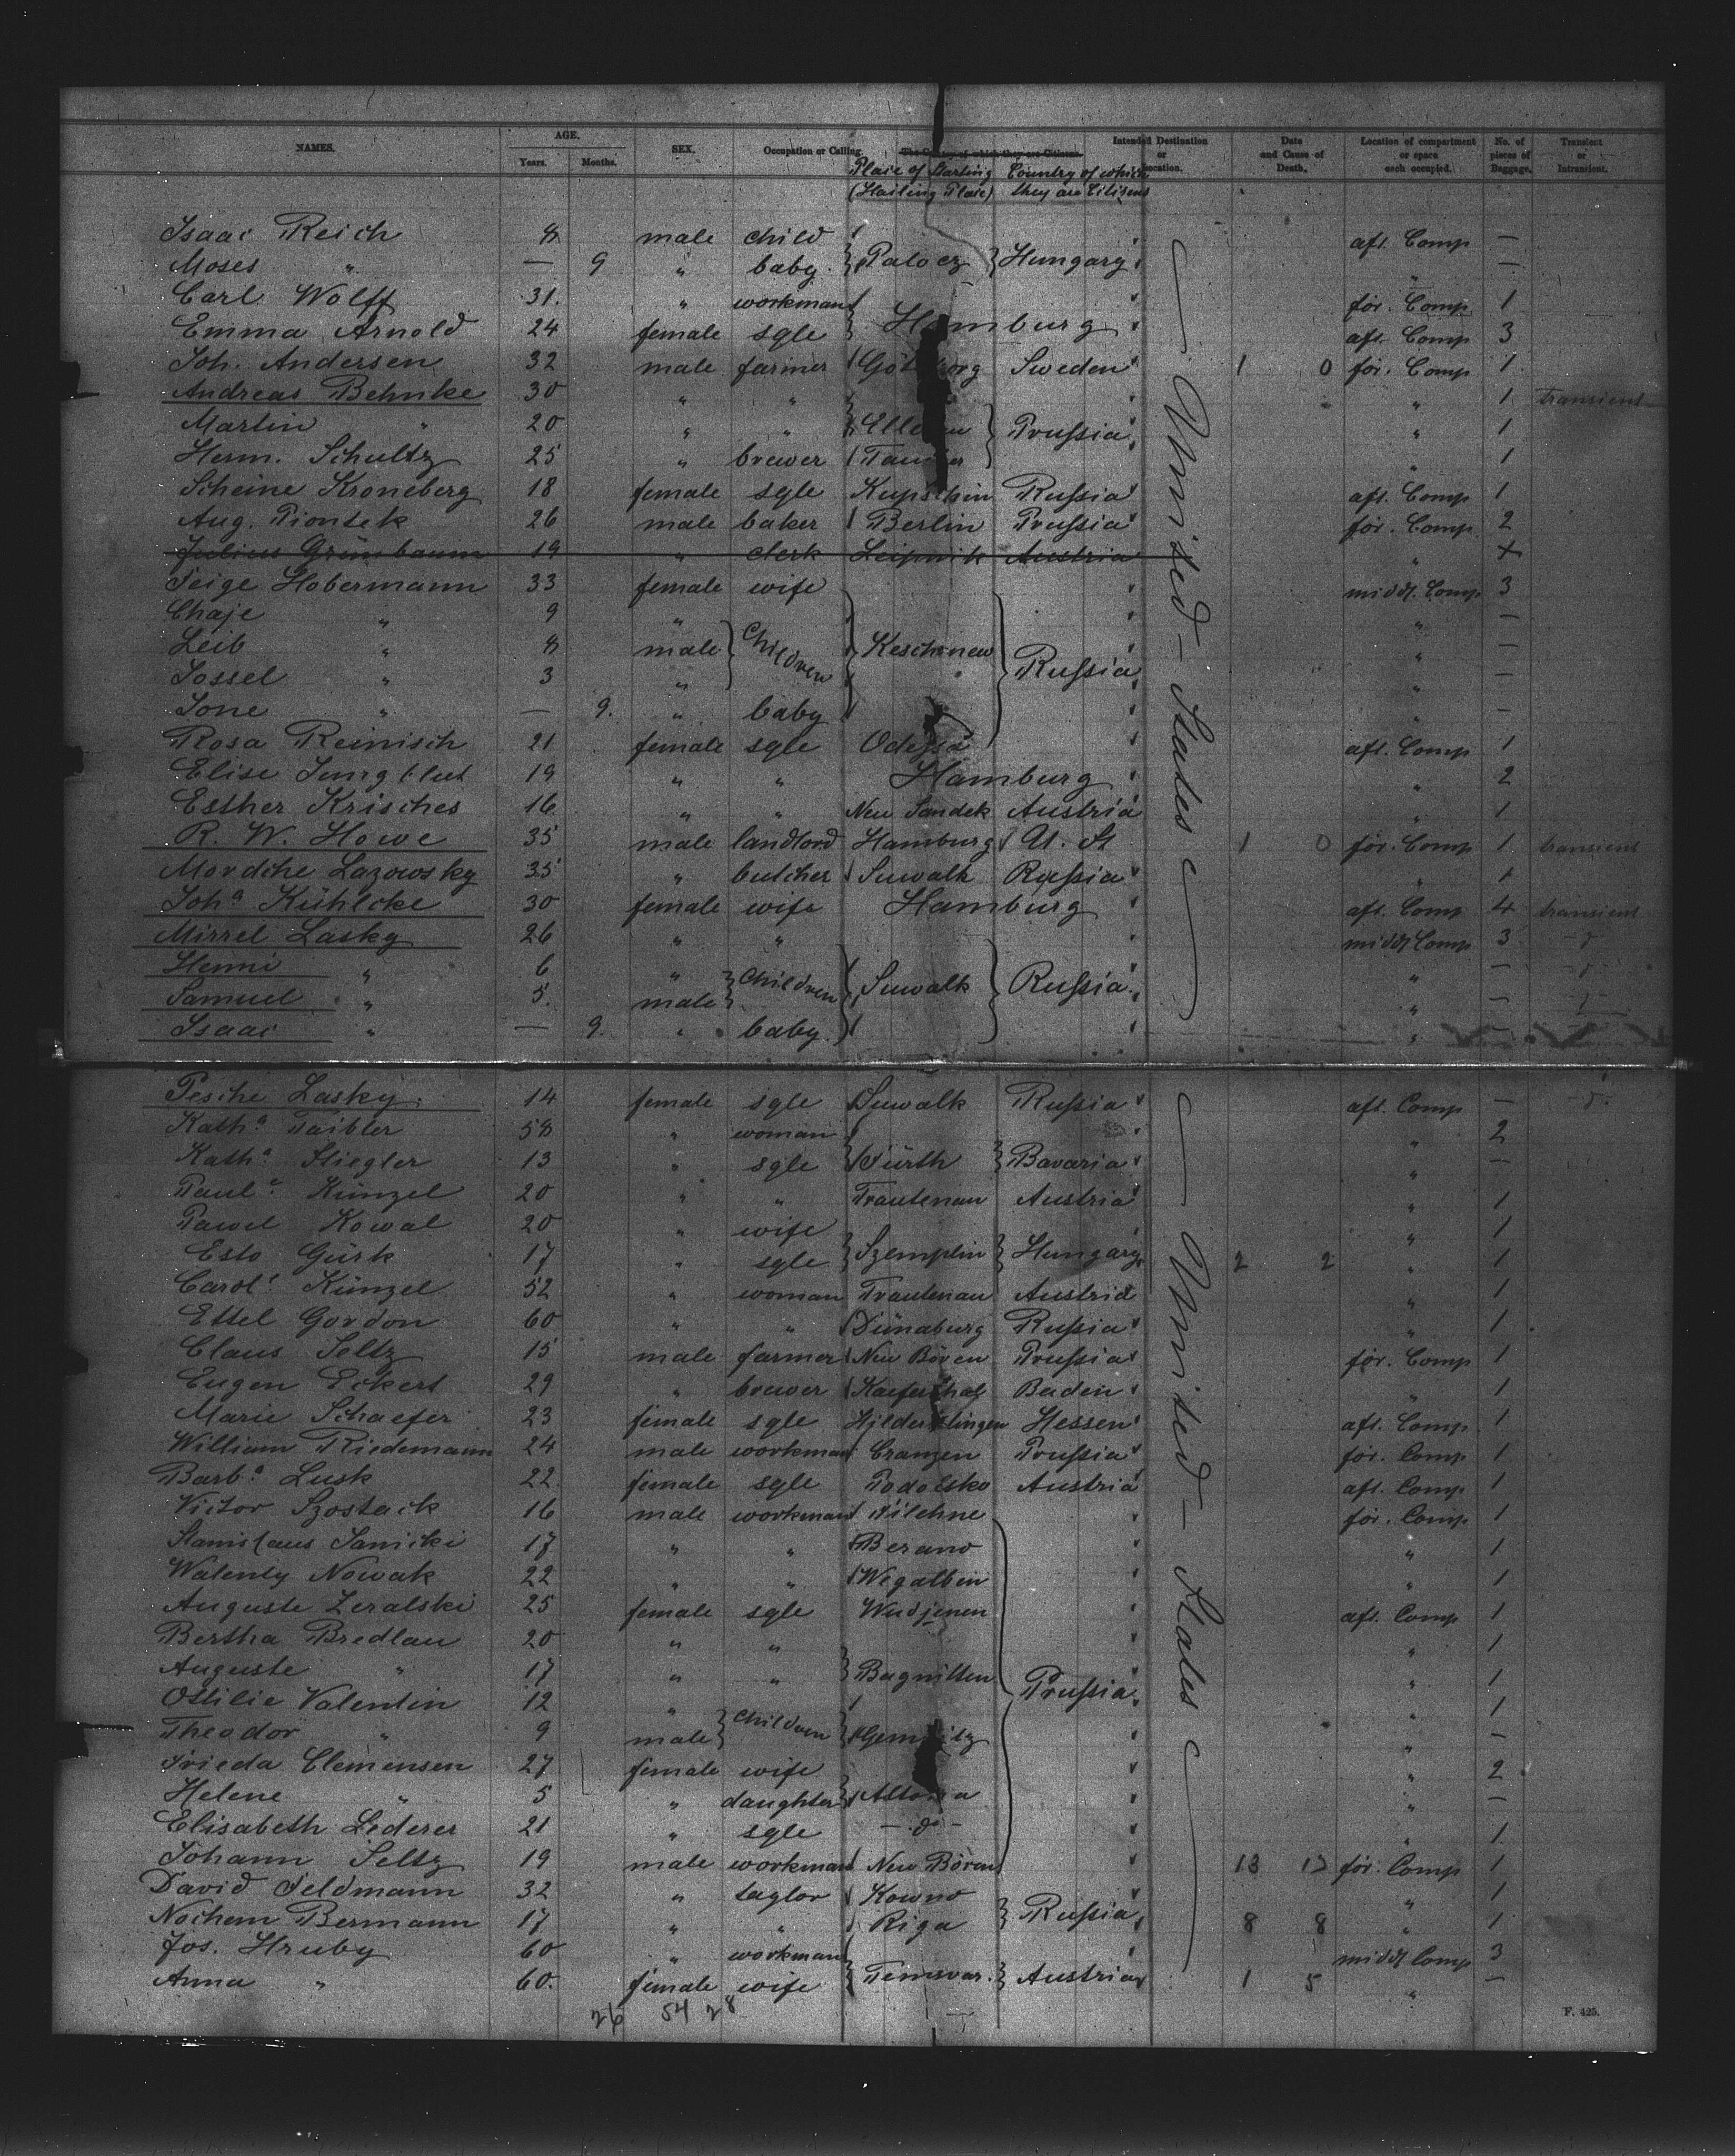 NAMES. AGE. Years. Months. SEX. Occupation or Calling. The Country of which they are Citizens. Intended Destination or Location. Date and Cause of Death. Location of compartment or space each occupied. No. of pieces of Baggage. Transient or Intransient.
Place of Starting (Hailing Place) Country of which they are Citizens
Isaac Reich 8 male child aft. Comp —
Moses " — 9 " baby Palocz Hungary " —
Carl Wolff 31. " workman för. Comp 1
Emma Arnold 24 female sgle Hamburg aft. Comp 3
Joh. Andersen 32 male farmer Sweden 1 0 för. Comp 1
Andreas Behnke 30 " " " 1 transient
Martin " 20 " " Prussia " 1
Herm. Schultz 25 " brewer " 1
Scheine Kroneberg 18 female sgle Kupschin Russia aft. Comp 1
Aug. Piontek 26 male baker Berlin Prussia för. Comp 2
Julius Grünbaum 19 " clerk Leipnik Austria " +
Feige Hobermann 33 female wife middl. Comp 3
Chaje " 9 " " —
Leib " 8 male Children Keschenew " —
Jossel " 3 " Russia " —
Jone " — 9. " baby " —
Rosa Reinisch 21 female sgle Odessa aft. Comp 1
Elise Jungblut 19 " " Hamburg " 2
Esther Krisches 16 " " New Sandek Austria " 1
R. W. Howe 35 male landlord Hamburg U. St 1 0 för. Comp 1 transient
Mordche Lazowsky 35 " butcher Suwalk Russia " 1
Joha Kühlcke 30 female wife Hamburg aft. Comp 4 transient
Mirrel Lasky 26 " " middl Comp 3 - d
Henni " 6 " Children " — - d
Samuel " 5. male Suwalk Russia " —
Isaac " — 9. " baby " —
United States
Pesche Lasky. 14 female sgle Suwalk Russia aft. Comp — - d.
Katha Taibler 58 " woman " 2
Katha Stiegler 13 " sgle Fürth Bavaria " —
Paula Künzel 20 " " Trautenau Austria " 1
Pawel Kowal 20 " wife " 1
Esto Gürk 17 " sgle Szemplin Hungary 2 2 " 1
Carol. Künzel 52 " woman Trautenau Austria " 1
Ettel Gordon 60 " " Dünaburg Russia " 1
Claus Seltz 15 male farmer New Bören Prussia för. Comp 1
Eugen Eckert 29 " brewer Kaeferthal Baden " 1
Marie Schaefer 23 female sgle Hessen aft. Comp 1
William Riedemann 24 male workman Cranzen Prussia för. Comp 1
Barba Lusk 22 female sgle Podolsko Austria aft. Comp 1
Victor Szostack 16 male workman Filehne för. Comp 1
Stanislaus Sanicki 17 " " Berano " 1
Walenty Nowak 22 " " Wegalben " 1
Auguste Zeralski 25 female sgle Wudjenen aft. Comp 1
Bertha Bredlau 20 " " " 1
Auguste " 17 " " Bagnitten Prussia " 1
Ottilie Valentin 12 " Children " 1
Theodor " 9 male " —
Frieda Clemensen 27 female wife " 2
Helene " 5 " daughter Altona " —
Elisabeth Lederer 21 " sgle — d — " 1
Johann Seltz 19 male workman New Bören 13 13 för. Comp 1
David Feldmann 32 " taylor Kowno " 1
Nochem Bermann 17 " " Riga Russia 8 8 " 1
Jos. Hruby 60 " workman middl Comp 3
Anna " 60. female wife Temsvar. Austria 1 5 " —
United States
26 54 28
F. 425.